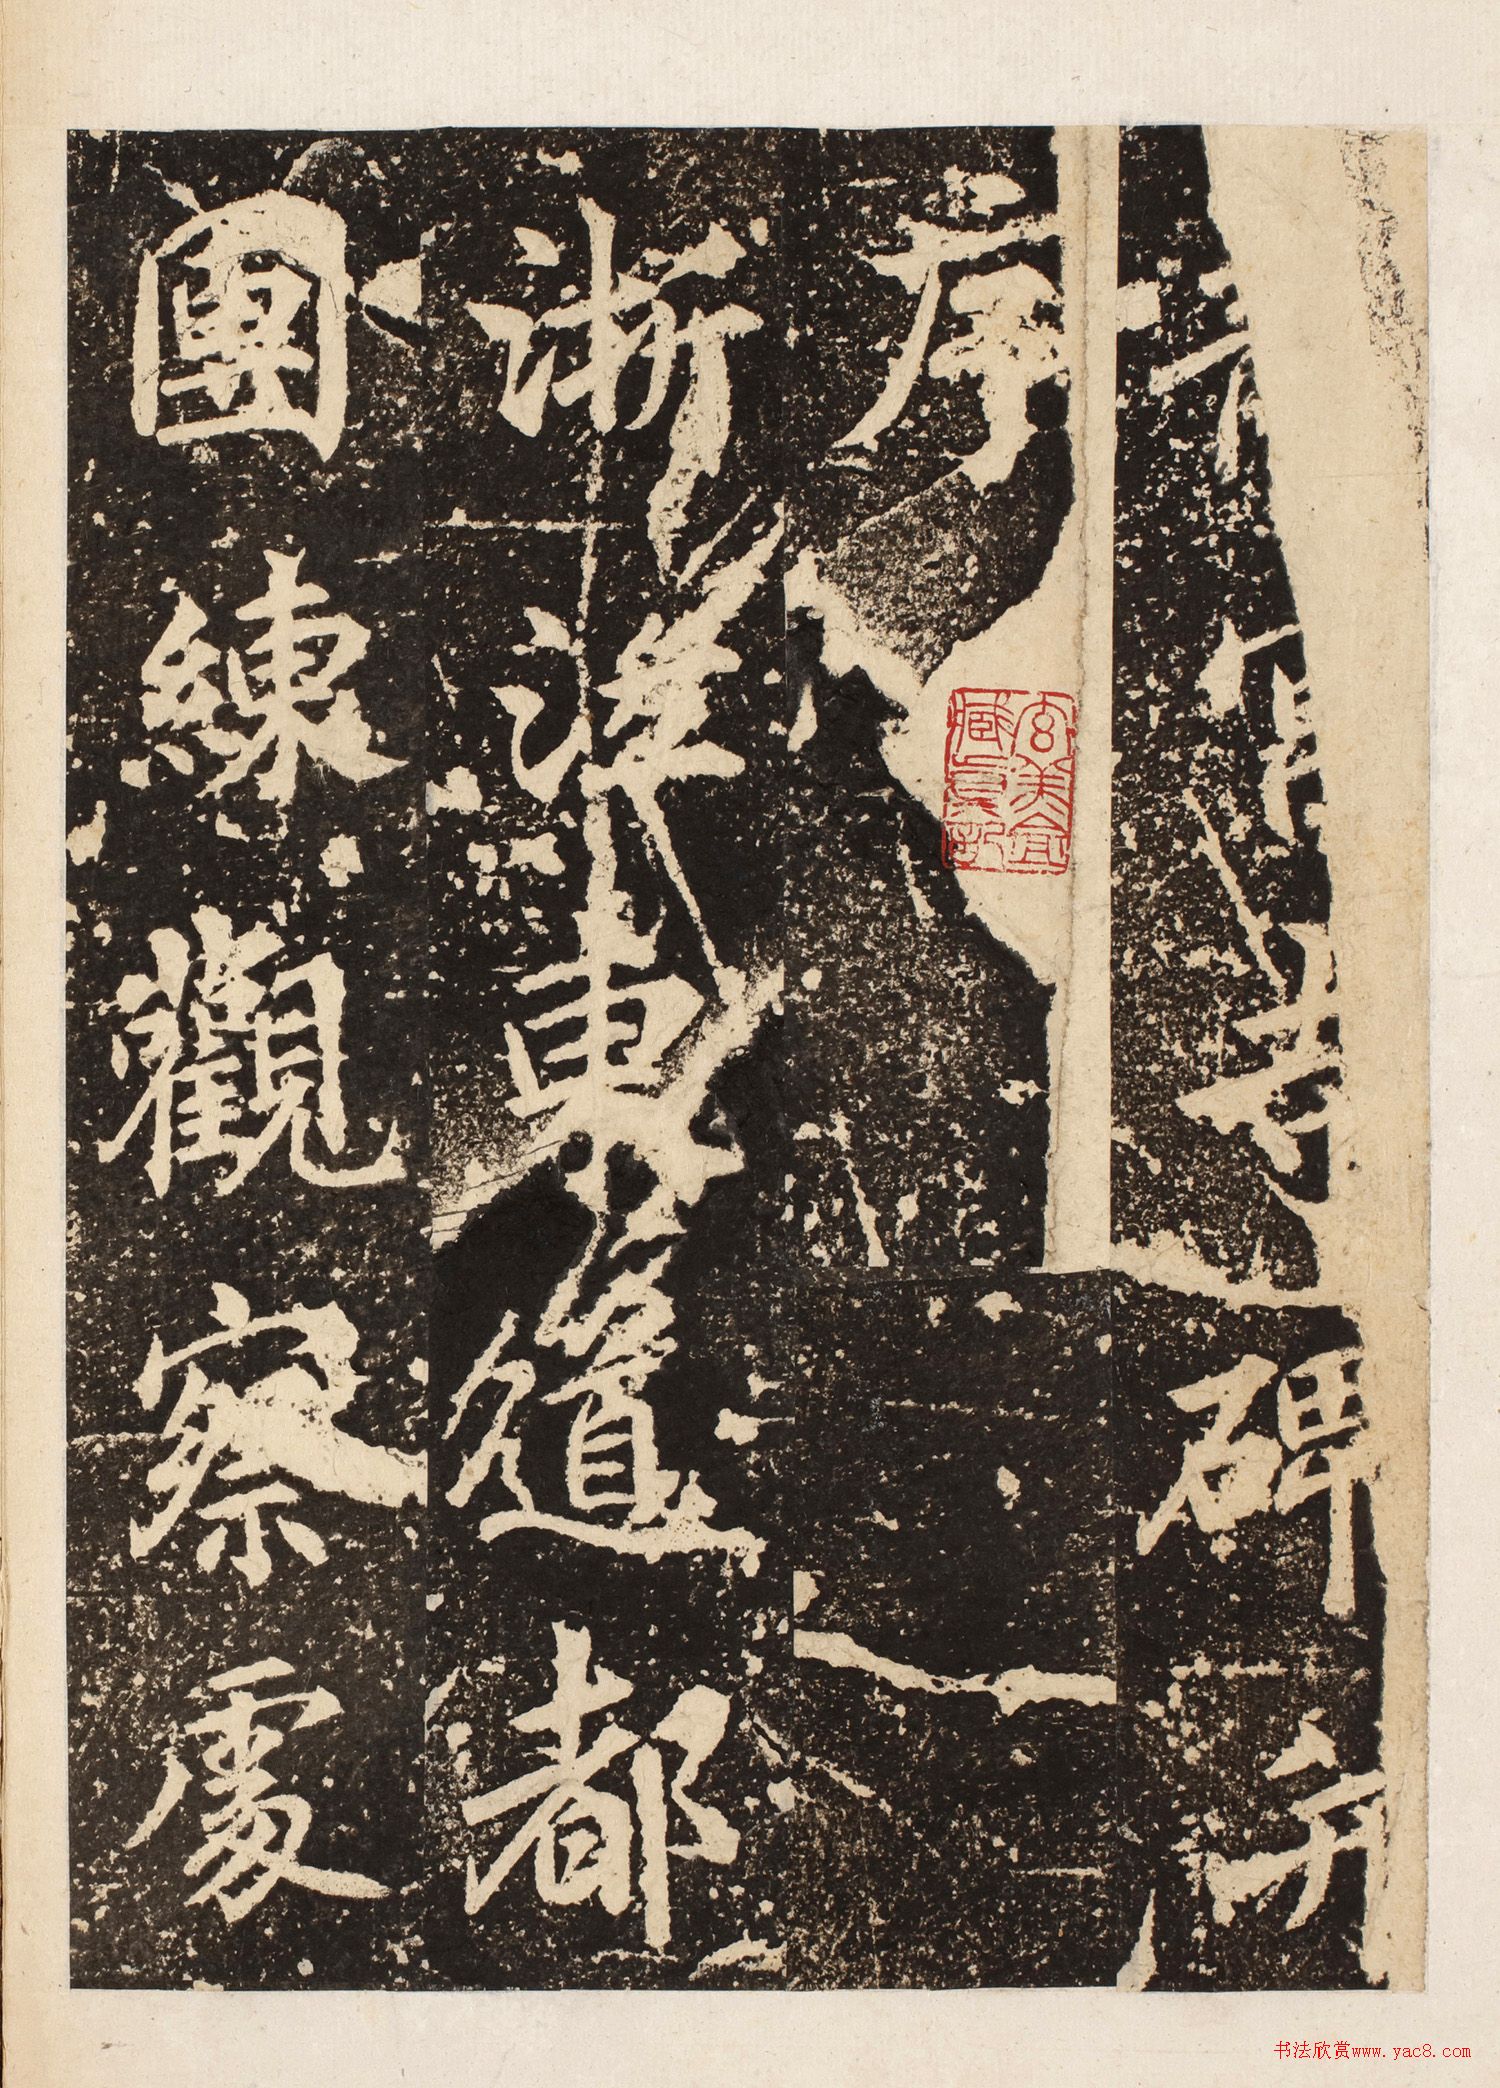 寺碑并
序
浙江東道都
團練觀察處
书法欣赏www.yac8.com